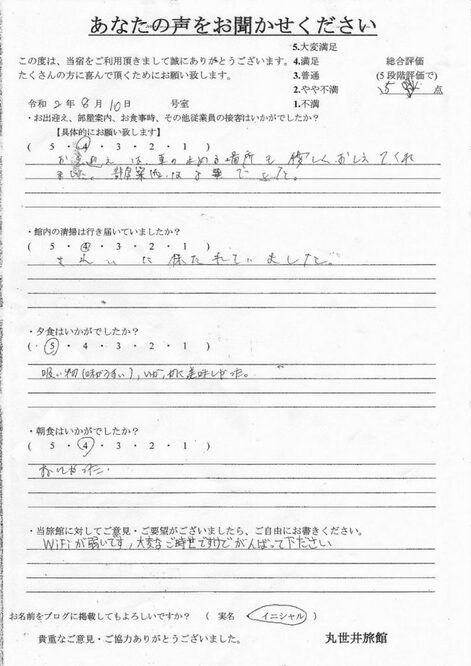 あなたの声をお聞かせください
この度は、当宿をご利用頂きまして誠にありがとうございます。
たくさんの方に喜んで頂くためにお願い致します。
5.大変満足
4.満足
3.普通
2.やや不満
1.不満
総合評価
(5段階評価で)
5 点
令和 2 年 8 月 10 日 号室
・お出迎え、部屋案内、お食事時、その他従業員の接客はいかがでしたか？
【具体的にお願い致します】
( 5 ・ 4 ・ 3 ・ 2 ・ 1 )
お出迎えは、車の止める場所も優しくおしえてくれ
ました。部屋案内は
・館内の清掃は行き届いていましたか？
( 5 ・ 4 ・ 3 ・ 2 ・ 1 )
きれいに保たれていました。
・夕食はいかがでしたか？
( 5 ・ 4 ・ 3 ・ 2 ・ 1 )
吸い物(味がうまい)、美味しかった。
・朝食はいかがでしたか？
( 5 ・ 4 ・ 3 ・ 2 ・ 1 )
おいしかった.
・当旅館に対してご意見・ご要望がございましたら、ご自由にお書きください。
WiFiが弱いです,大変なご時世ですけどがんばって下さい
お名前をブログに掲載してもよろしいですか？ ( 実名 ・ イニシャル )
貴重なご意見・ご協力ありがとうございました。
丸世井旅館